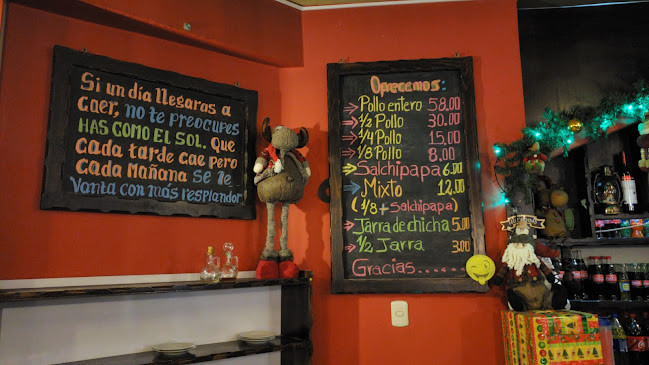 Si un día llegaras a
caer, no te preocupes
HAS COMO EL SOL. Que
cada tarde cae pero
cada mañana se le
vanta con más resplandor.
Ofrecemos:
Pollo entero 58.00
1/2 Pollo 30.00
1/4 Pollo 15.00
1/8 Pollo 8.00
Salchipapa 6.00
Mixto 12.00
(1/8 + Salchipapa)
Jarra de chicha 5.00
1/2 Jarra 3.00
Gracias......